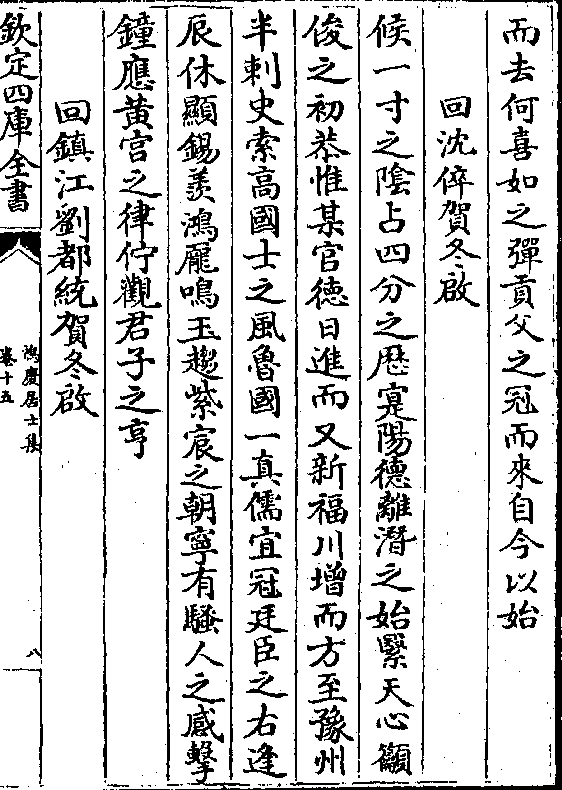 而去何喜如之彈貢父之冠而來自今以始
回沈倅賀冬啟
候一寸之陰占四分之厯寔陽德離潛之始緊天心籲
俊之初恭惟某官徳日進而又新福川增而方至豫州
半刺史索高國士之風魯國一真儒宜冠廷臣之右逢
辰休顯錫羨鴻龐鳴玉趨紫宸之朝寧有騷人之感擊
鐘應黄宫之律佇觀君子之亨
回鎮江劉都統賀冬啟
欽定四庫全書
鴻慶居士集
卷十五
八